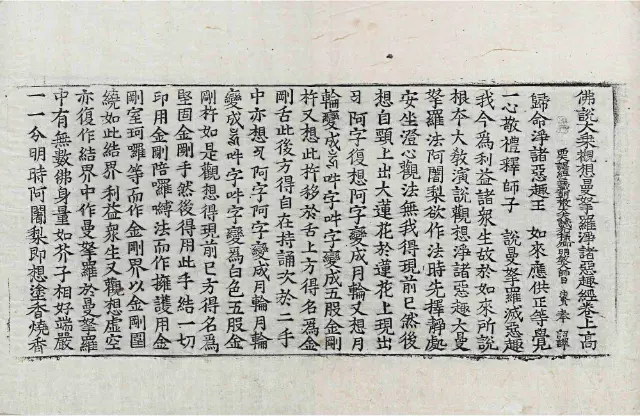 佛說大乘觀想曼拏羅淨諸惡趣經卷上 高
奉 詔譯
歸命淨諸惡趣王 如來應供正等覺
一心敬禮釋師子 說曼拏羅滅惡趣
我今爲利益諸衆生故於如來所說
根本大教演說觀想淨諸惡趣大曼
拏羅法阿闍梨欲作法時先擇靜處
安坐澄心觀法無我得現前已然後
想自頭上出大蓮花於蓮花上現出
阿字復想阿字變成月輪又想月
輪變成吽字吽字變成五股金剛
杵又想此杵移於舌上方得名爲金
剛舌此後方得自在持誦次於二手
中亦想阿字阿字變成月輪月輪
變成吽字吽字變爲白色五股金
剛杵如是觀想得現前已方得名爲
堅固金剛手然後得用此手結一切
印用金剛陪囉嚩法而作擁護用金
剛室珂囉等而作金剛界以金剛圍
繞如此結界利益衆生又觀想虛空
亦復作結界中作曼拏羅於曼拏羅
中有無數佛身量如芥子相好端嚴
一一分明時阿闍梨即想塗香燒香